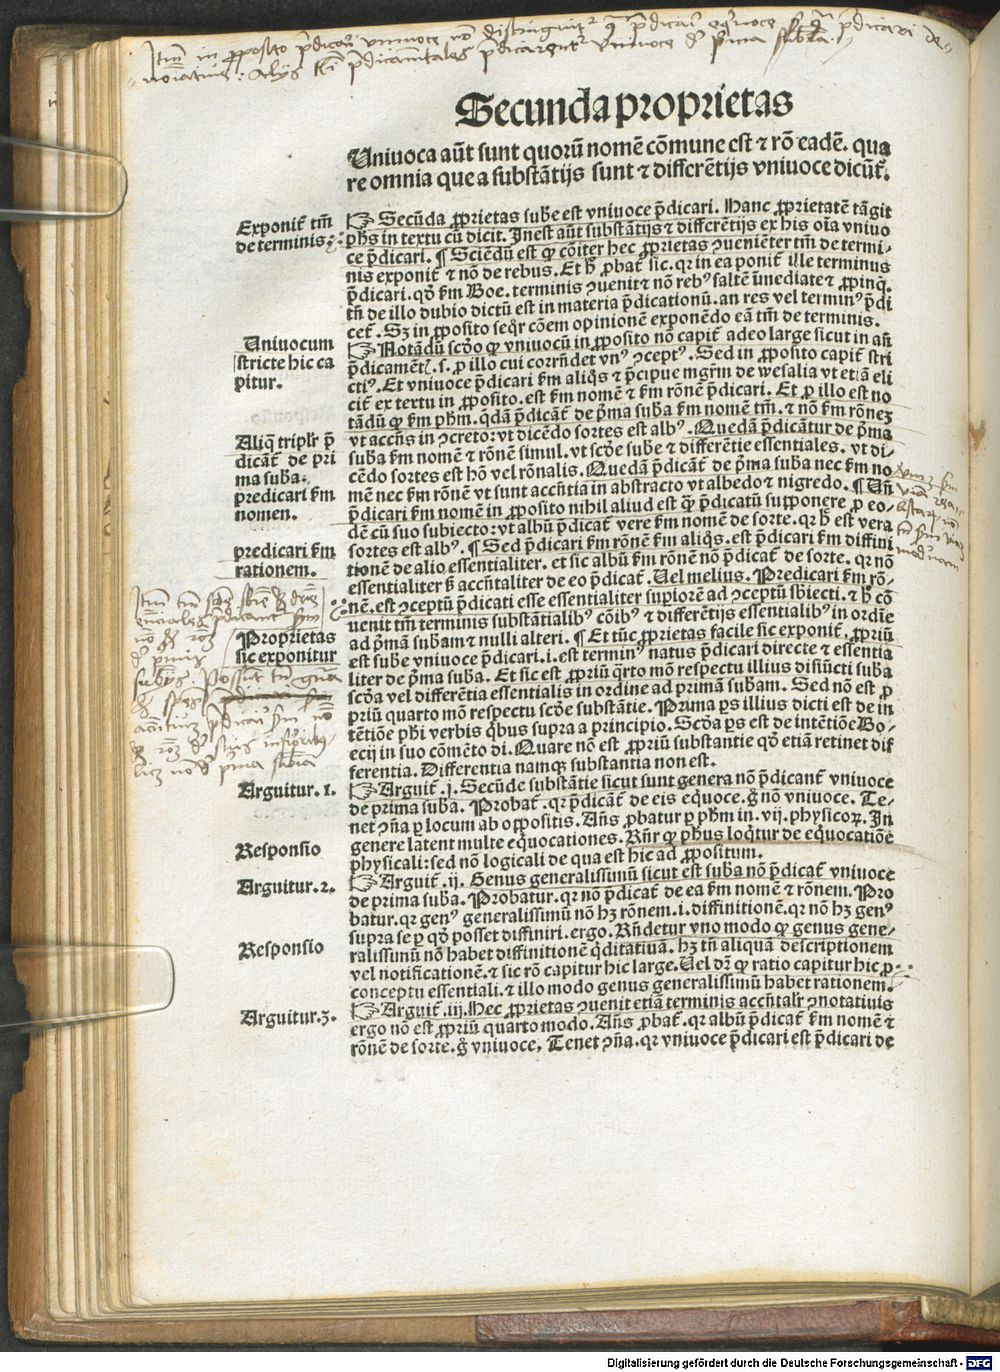 Secunda proprietas
Uniuoca aũt sunt quorũ nomẽ cõmune est ⁊ rõ eadẽ. qua
re omnia que a substãtijs sunt ⁊ differẽtijs vniuoce dicũt̃.
Exponit̃ tm̃
de terminis
☞ Secũda ꝓprietas sube est vniuoce p̃dicari. Hanc ꝓprietatẽ tãgit
ph̃s in textu cũ dicit. Inest aũt substãtijs ⁊ differẽtijs ex his oĩa vniuo
ce p̃dicari. ¶ Sciẽdũ est ꝙ cõiter hec ꝓprietas ꝯueniẽter tm̃ de termi⸗
nis exponit̃ ⁊ nõ de rebus. Et h̃ ꝓbat̃ sic. qr in ea ponit̃ ille terminus
p̃dicari. qd̓ fm Boe. terminis ꝯuenit ⁊ nõ rebꝰ saltẽ ĩmediate ⁊ ꝓpinq̃.
tñ de illo dubio dictũ est in materia p̃dicationũ. an res vel terminꝰ p̃di
cet̃. Sꝫ in ꝓposito seq̃r cõem opinionẽ exponẽdo eã tm̃ de terminis.
Uniuocum
stricte hic ca
pitur.
☞ Notãdũ scd̓o ꝙ vniuocũ in ꝓposito nõ capit̃ adeo large sicut in añ
p̃dicamẽt̃. s. ꝓ illo cui corrñdet vnꝰ ꝯceptꝰ. Sed in ꝓposito capit̃ stri
ctiꝰ. Et vniuoce p̃dicari fm aliq̃s ⁊ p̃cipue mgr̃m de wesalia vt etiã eli
cit̃ ex textu in ꝓposito. est fm nomẽ ⁊ fm rõnẽ p̃dicari. Et ꝓ illo est no
tãdũ ꝙ fm ph̃m. q̃dã p̃dicãt̃ de p̃ma suba fm nomẽ tm̃. ⁊ nõ fm rõneꝫ
Aliq̃ triplr̃ p̃
dicãt̃ de pri
ma suba.
vt accñs in ꝯcreto: vt dicẽdo sortes est albꝰ. Quedã p̃dicãtur de p̃ma
suba fm nomẽ ⁊ rõnẽ simul. vt scd̓e sube ⁊ differẽtie essentiales. vt di⸗
cẽdo sortes est hõ vel rõnalis. Quedã p̃dicãt̃ de p̃ma suba nec fm no
predicari fm
nomen.
mẽ nec fm rõnẽ vt sunt accñtia in abstracto vt albedo ⁊ nigredo. ¶ Uñ
p̃dicari fm nomẽ in ꝓposito nihil aliud est q̃ꝫ p̃dicatũ supponere ꝓ eo⸗
dẽ cũ suo subiecto: vt albũ p̃dicat̃ vere fm nomẽ de sorte. qr h̃ est vera
predicari fm
rationem.
sortes est albꝰ. ¶ Sed p̃dicari fm rõnẽ fm aliq̃s. est p̃dicari fm diffini
tionẽ de alio essentialiter. et sic albũ fm rõnẽ nõ p̃dicat̃ de sorte. qr nõ
essentialiter s̃ accñtaliter de eo p̃dicat̃. Uel melius. Predicari fm rõ⸗
nẽ. est ꝯceptũ p̃dicati esse essentialiter supiorẽ ad ꝯceptũ sb̃iecti. ⁊ h̃ cõ
uenit tm̃ terminis substãtialibꝰ cõibꝰ ⁊ differẽtijs essentialibꝰ in ordĩe
Proprietas
sic exponitur
ad p̃mã subam ⁊ nulli alteri. ¶ Et tũc ꝓprietas facile sic exponit̃. ꝓpriũ
est sube vniuoce p̃dicari. i. est terminꝰ natus p̃dicari directe ⁊ essentia
liter de p̃ma suba. Et sic est ꝓpriũ q̃rto mõ respectu illius disiũcti suba
scd̓a vel differẽtia essentialis in ordine ad primã subam. Sed nõ est ꝓ
priũ quarto mõ respectu scd̓e substãtie. Prima ps illius dicti est de in
tẽtiõe ph̃i verbis q̃bus supra a principio. Scd̓a ps est de intẽtiõe Bo⸗
ecij in suo cõmẽto di. Quare nõ est ꝓpriũ substantie qd̓ etiã retinet dif
ferentia. Differentia namqꝫ substantia non est.
Arguitur. 1.
☞ Arguit̃. j. Secũde substãtie sicut sunt genera nõ p̃dicant̃ vniuoce
de prima suba. Probat̃. qr p̃dicãt̃ de eis equoce. g̃ nõ vniuoce. Te⸗
net ꝯña ꝑ locum ab oppositis. Añs ꝓbatur ꝑ ph̃m in. vij. physicoꝝ. In
Responsio
genere latent multe equocationes. Rñr ꝙ phus loq̃tur de equocatiõe
physicali: sed nõ logicali de qua est hic ad ꝓpositum.
Arguitur. 2.
☞ Arguit̃. ij. Genus generalissimũ sicut est suba nõ p̃dicat̃ vniuoce
de prima suba. Probatur. qr nõ p̃dicat̃ de ea fm nomẽ ⁊ rõnem. Pro
batur. qr genꝰ generalissimũ nõ hꝫ rõnem. i. diffinitionẽ. qr nõ hꝫ genꝰ
Responsio
supra se ꝑ qd̓ posset diffiniri. ergo. Rñdetur vno modo ꝙ genus gene⸗
ralissimũ nõ habet diffinitionẽ q̃ditatiuã. hꝫ tñ aliquã descriptionem
vel notificationẽ. ⁊ sic rõ capitur hic large. Uel dr̃ ꝙ ratio capitur hic ꝓ
conceptu essentiali. ⁊ illo modo genus generalissimũ habet rationem.
Arguitur. 3.
☞ Arguit̃. iij. Hec ꝓprietas ꝯuenit etiã terminis accñtalr̃ ꝯnotatiuis
ergo nõ est ꝓpriũ quarto modo. Añs ꝓbat̃. qr albũ p̃dicat̃ fm nomẽ ⁊
rõnẽ de sorte. g̃ vniuoce. Tenet ꝯña. qr vniuoce p̃dicari est p̃dicari de
Digitalisierung gefördert durch die Deutsche Forschungsgemeinschaft - DFG